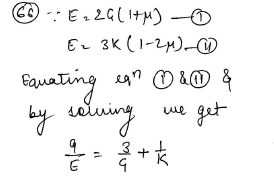 66 ∵ E = 2G(1+μ) — I
E = 3K(1-2μ) — II
Equating eqn I & II &
by solving we get
9/E = 3/G + 1/K